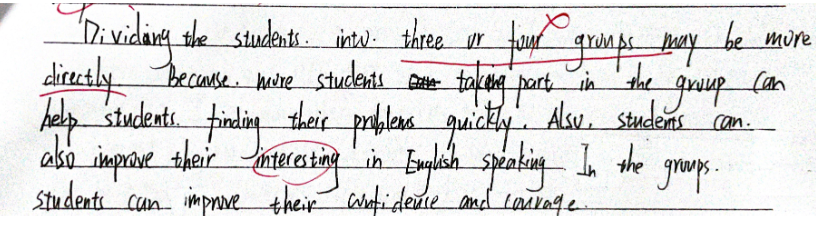 Dividing the students. into. three or four groups may be more
directly. Because. more students taking part in the group can
help students. finding their problems quickly. Also, students can.
also improve their interesting in English speaking. In the groups.
students can improve their confidence and courage.